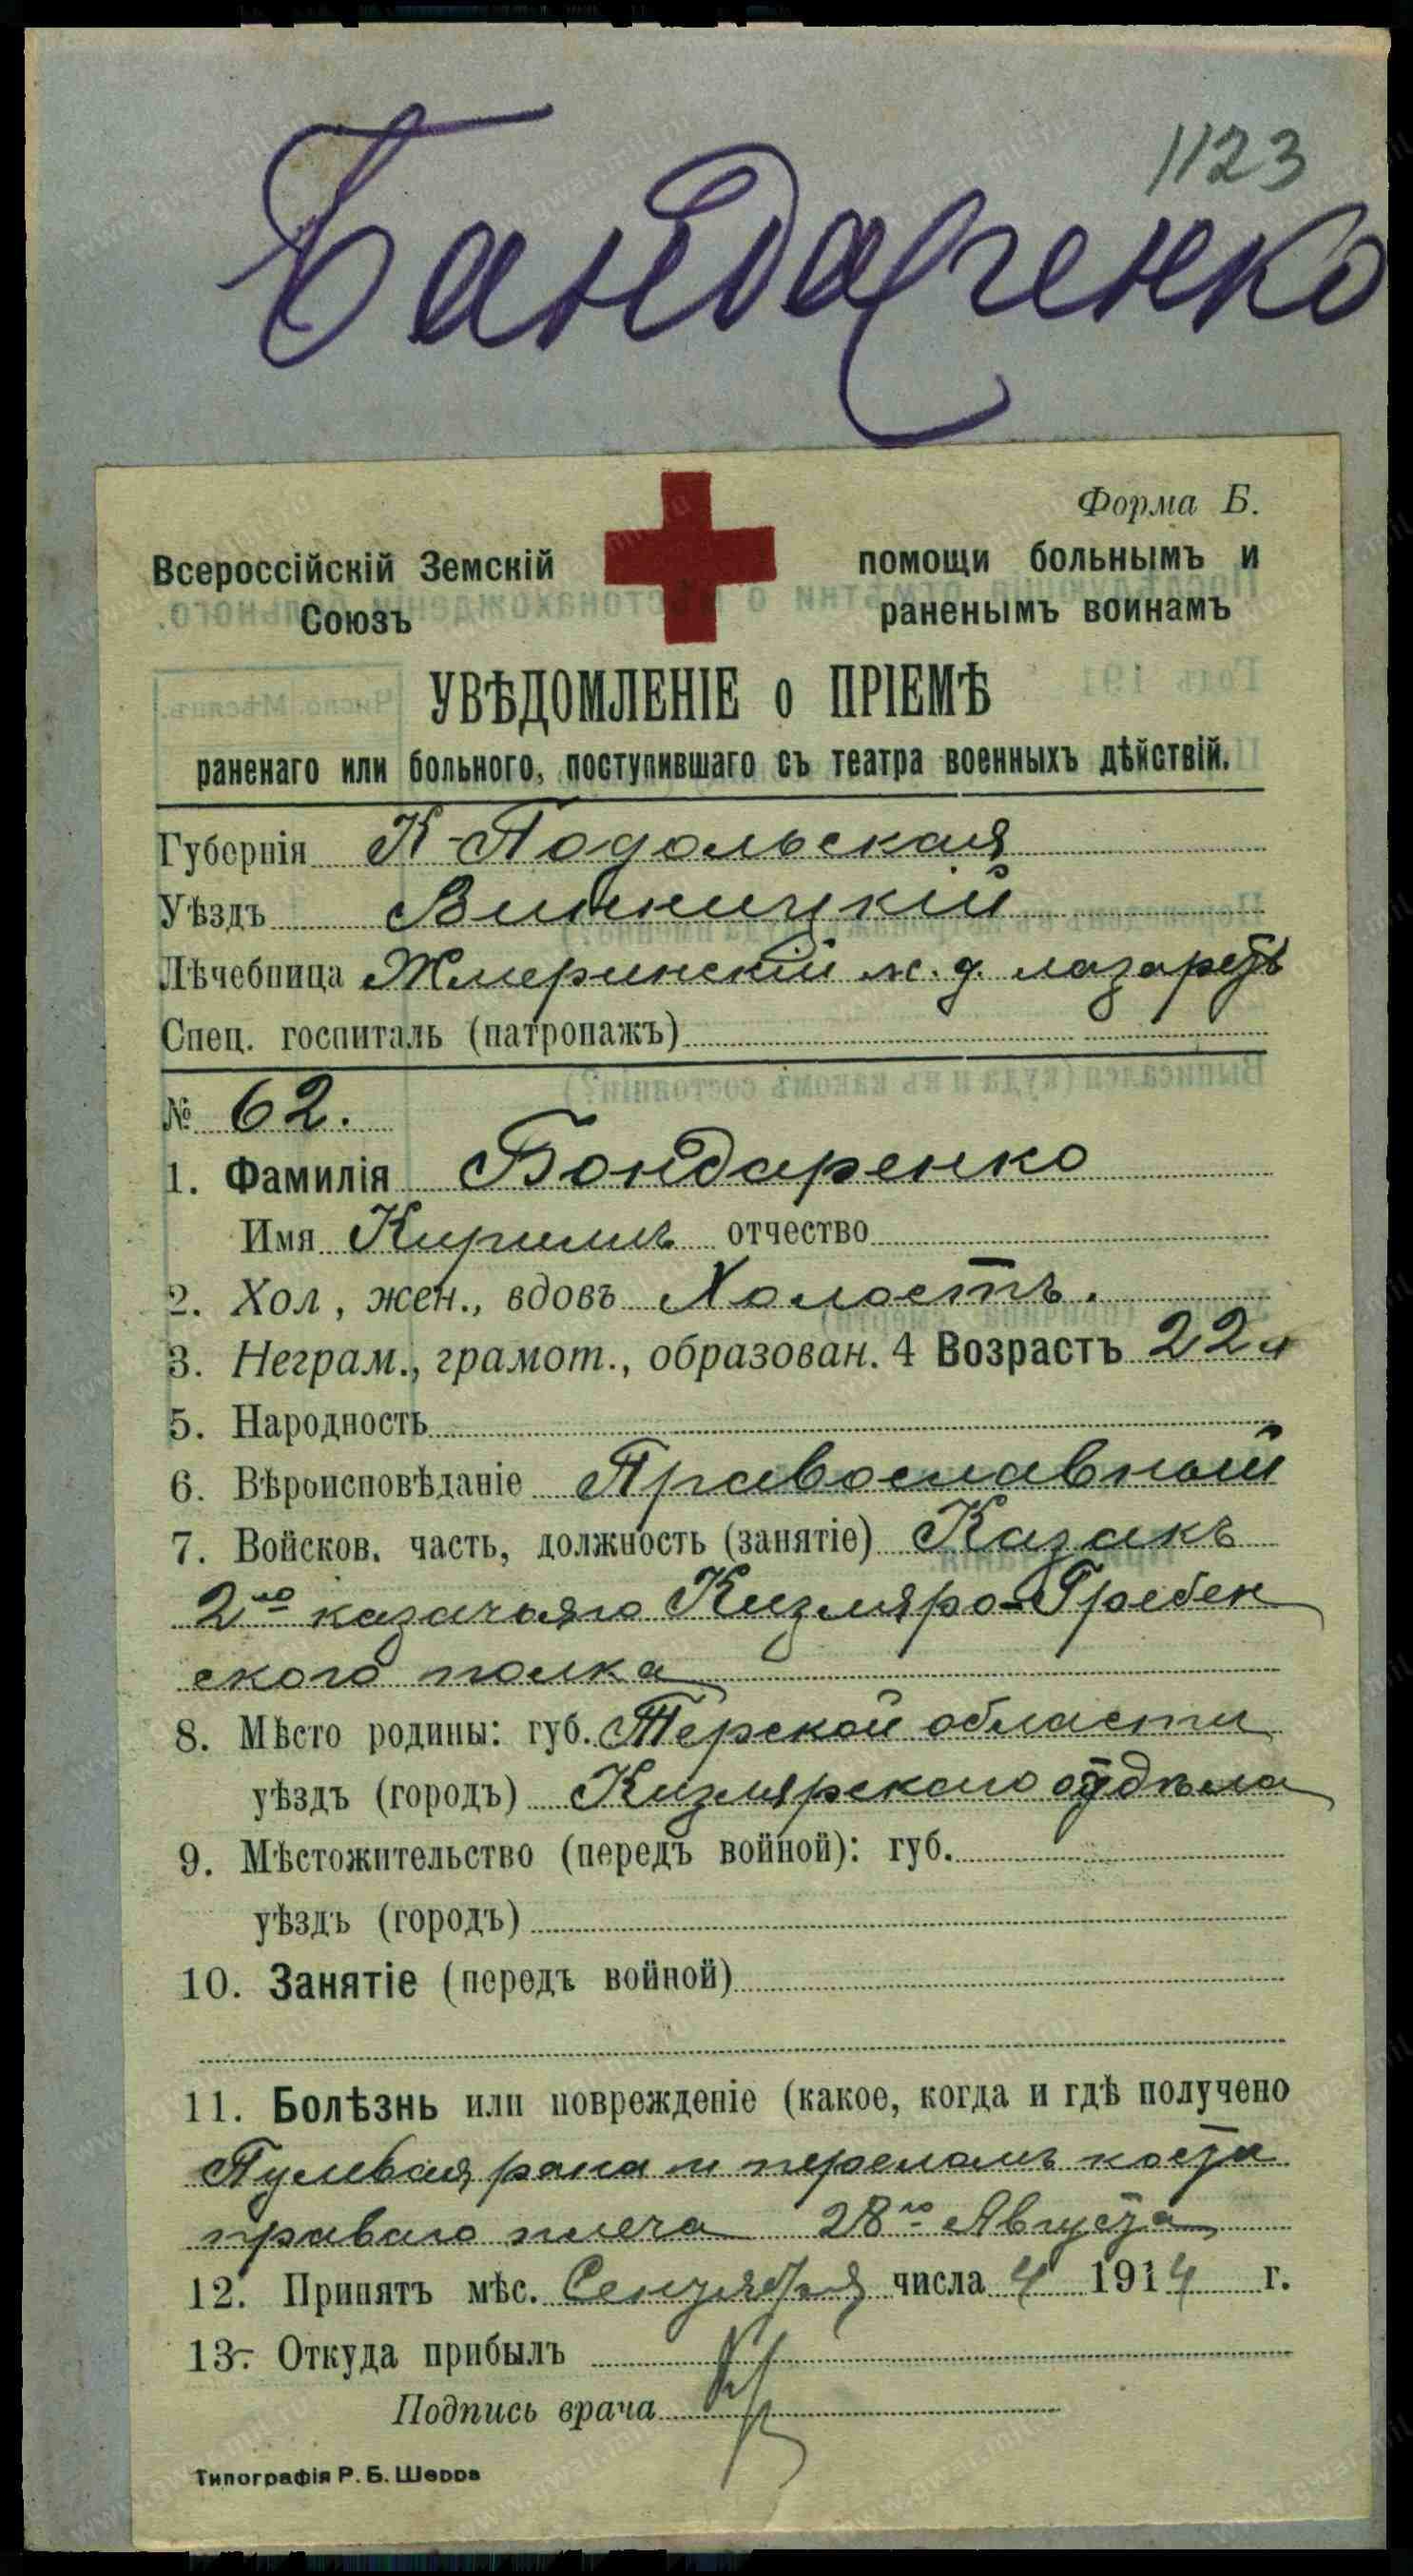 1123
Бандаренко
Форма Б.
Всероссійскій Земскій
Союзъ
помощи больнымъ и
раненымъ воинамъ
УВѢДОМЛЕНІЕ о ПРІЕМѢ
раненаго или больного, поступившаго съ театра военныхъ дѣйствій.
Губернія К-Подольская
Уѣздъ Винницкій
Лѣчебница Жмеринскій ж. д. лазаретъ
Спец. госпиталь (патронажъ)
№ 62.
1. Фамилія Бондаренко
Имя Кириллъ отчество
2. Хол, жен., вдовъ Холостъ.
3. Неграм., грамот., образован. 4 Возрастъ 22 л
5. Народность
6. Вѣроисповѣданіе Православный
7. Войсков. часть, должность (занятіе) Казакъ
2го казачьяго Кизляро-Гребен
ского полка
8. Мѣсто родины: губ. Терской области
уѣздъ (городъ) Кизлярскаго отдѣла
9. Мѣстожительство (передъ войной): губ.
уѣздъ (городъ)
10. Занятіе (передъ войной)
11. Болѣзнь или поврежденіе (какое, когда и гдѣ получено
Пулевая рана и переломъ кости
праваго плеча 28го Августа
12. Принятъ мѣс. Сентября числа 4 1914 г.
13. Откуда прибылъ
Подпись врача
Типографія Р. Б. Шерра